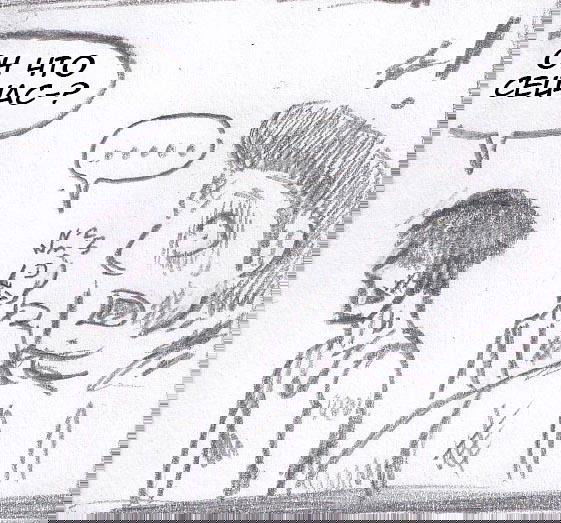 ОН ЧТО
СЕЙЧАС-?
......